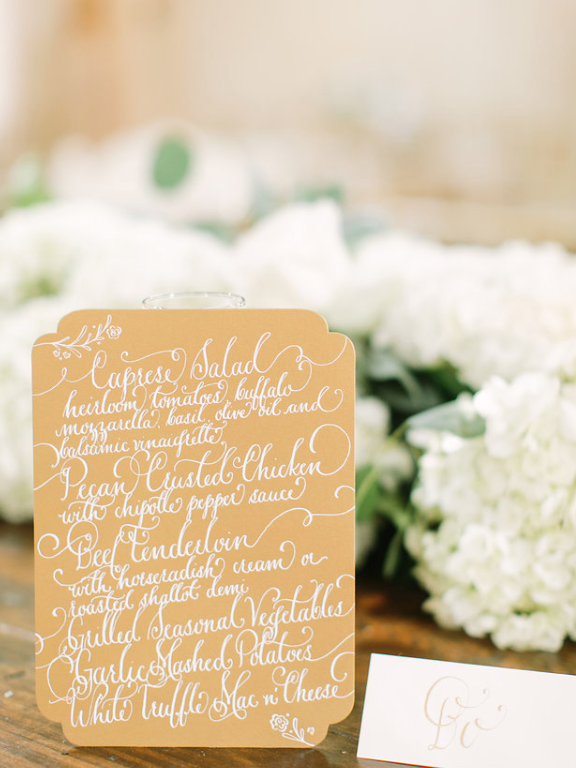 Caprese Salad
heirloom tomatoes, buffalo
mozzarella, basil, olive oil and
balsamic vinaigrette,
Pecan Crusted Chicken
with chipotle pepper sauce
Beef Tenderloin
with horseradish cream or
roasted shallot demi
Grilled Seasonal Vegetables
Garlic Mashed Potatoes
White Truffle Mac n' Cheese